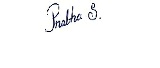 Prabha S.